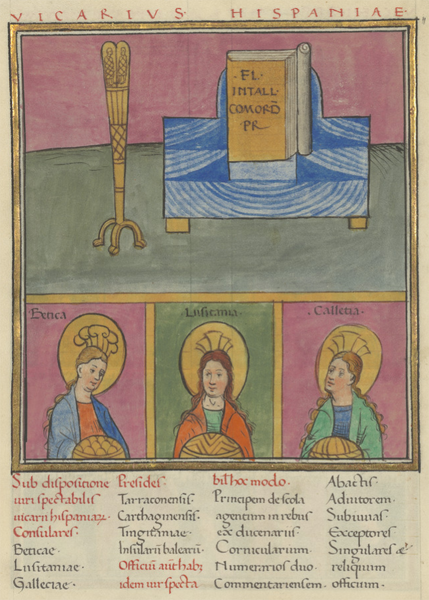 VICARIVS HISPANIAE
FL
INTALL
COMORD
PR
Betica
Lusitania
Calletia
Sub dispositione
uiri spectabilis
uicarii hispaniaꝝ
Consulares
Beticae
Lusitaniae
Galleciae
Presides
Tarraconensis
Carthaginensis
Tingitaniae
Insularũ balearũ
Officiũ aut hab&
idem uir specta
bil hoc modo
Principem de scola
agentum in rebus
ex ducenariis
Cornicularum
Numerarios duo
Commentariensem
Abactis
Adiutorem
Subuuas
Exceptores
Singulares &
reliquum
officium